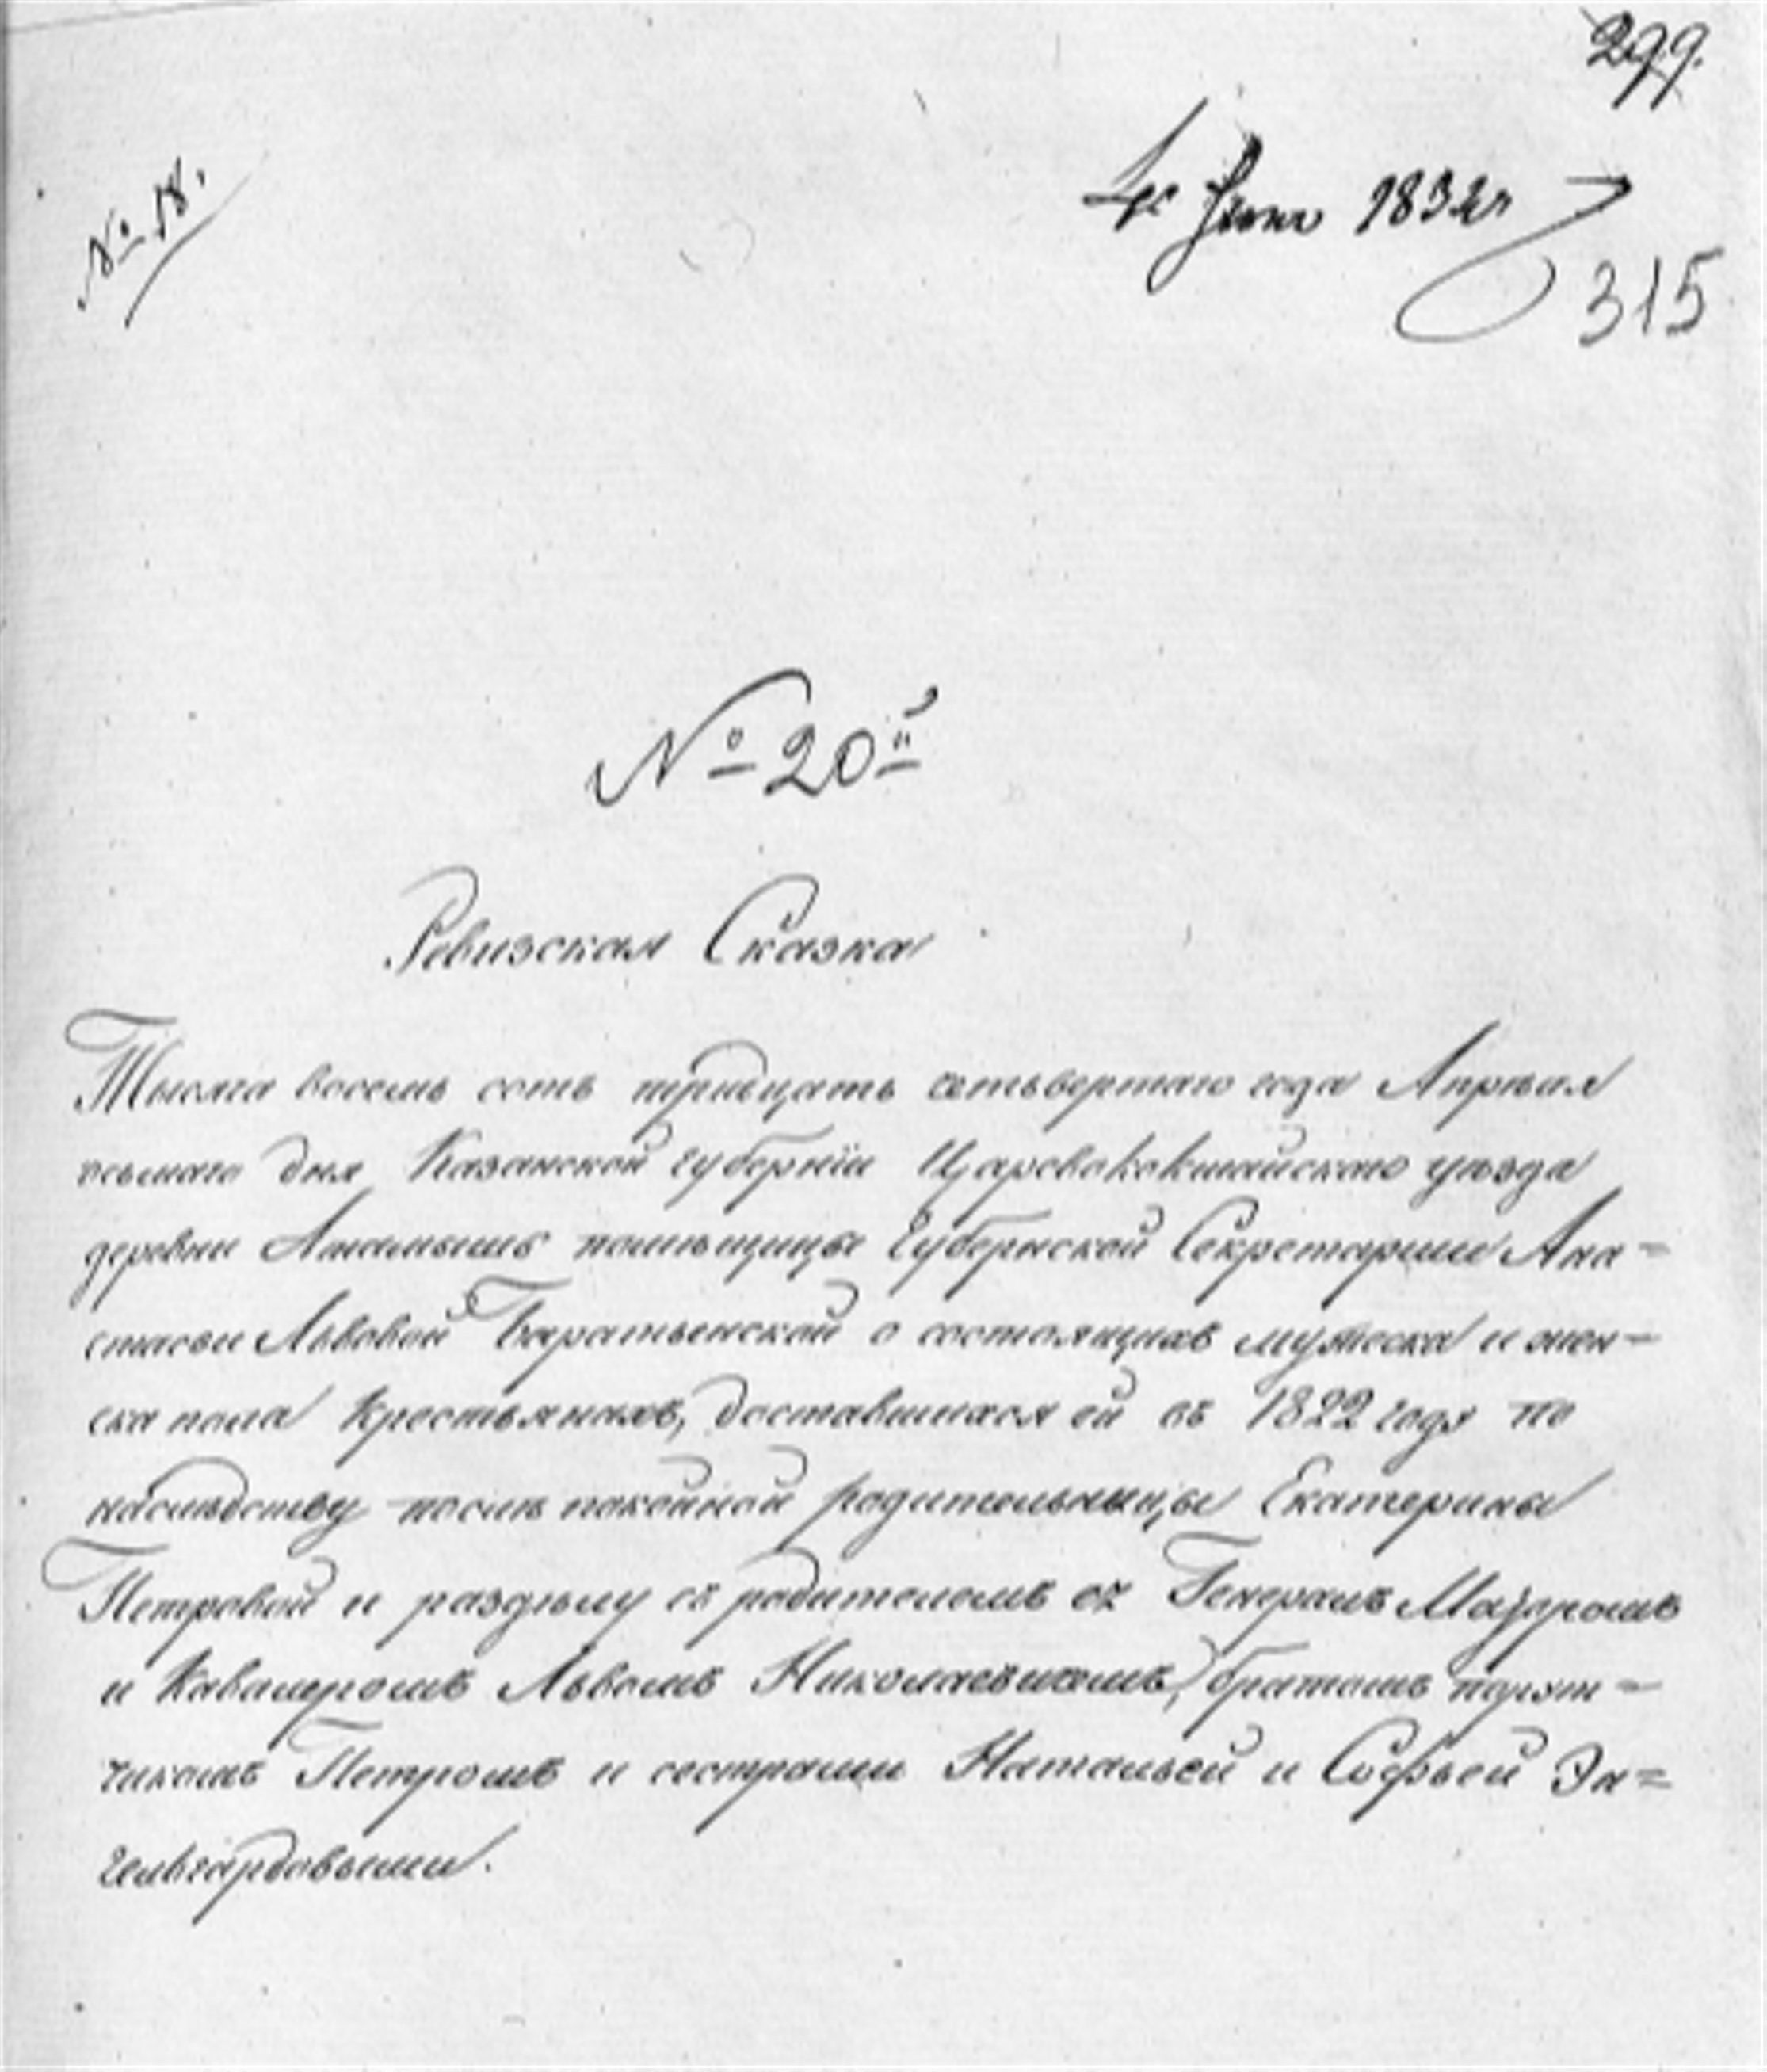 299.
№ 18.
1832
315
№ 20й
Ревизская Сказка
Тысяча восемь сотъ тридцать четьвертаго года Апрѣля
осьмаго дня Казанской губерніи Царевококшайскаго уѣзда
деревни помѣщицы Губернской Секретарши Ана=
стасьи Львовой Баратынской о состоящихъ мужеска и жен=
ска пола крестьянахъ, доставшихся ей въ 1822 годя по
наслѣдству послѣ покойной родительницы Екатерины
Петровой и раздѣлу съ родителемъ ея Генералъ Маіоромъ
и Кавалеромъ Львомъ Николаевичемъ, братомъ порут=
чикомъ Петромъ и сестрами Натальей и Софьей Эн=
гельгардовыми.